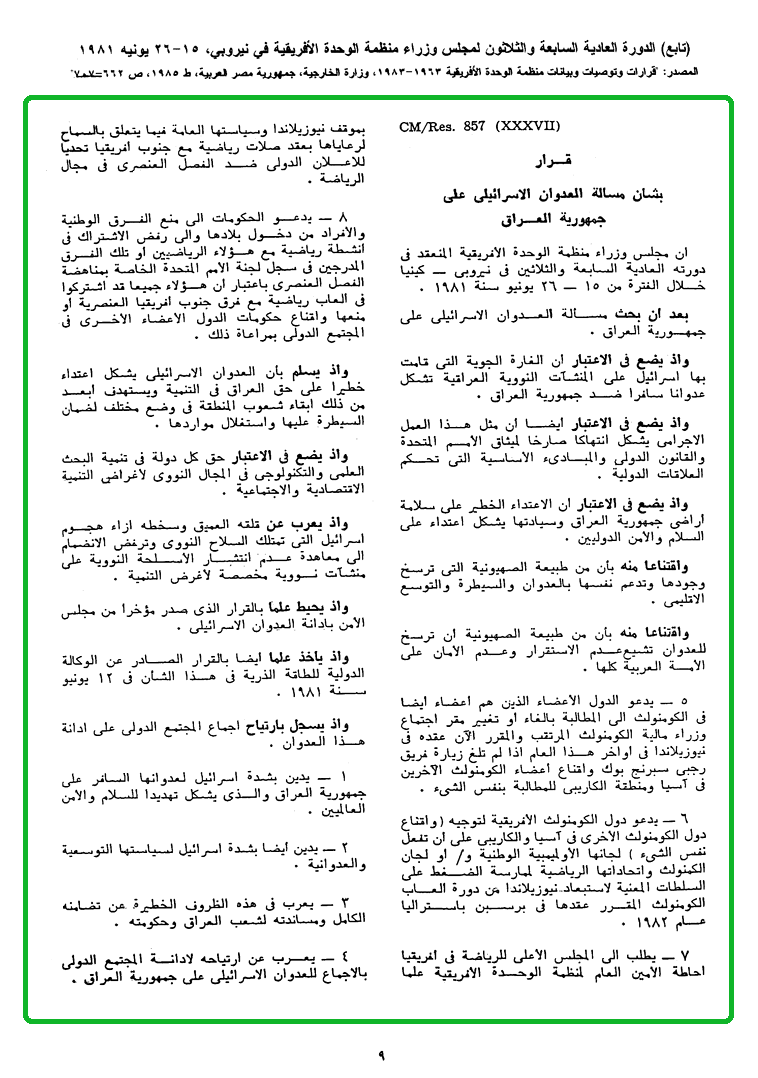 (تابع) الدورة العادية السابعة والثلاثون لمجلس وزراء منظمة الوحدة الأفريقية في نيروبي، ١٥-٢٦ يونيه ١٩٨١
المصدر: "قرارات وتوصيات وبيانات منظمة الوحدة الأفريقية ١٩٦٣-١٩٨٣، وزارة الخارجية، جمهورية مصر العربية، ط ١٩٨٥، ص ٦٦٢-٧٠٧"
CM/Res. 857 (XXXVII)
قــرار
بشان مسالة العدوان الاسرائيلى على
جمهورية العــراق
ان مجلس وزراء منظمة الوحدة الأفريقية المنعقد فى
دورته العادية السابعة والثلاثين فى نيروبى — كينيا
خــلال الفترة من ١٥ — ٢٦ يونيو سنة ١٩٨١ .
بعد ان بحث مســالة العــدوان الاسرائيلى على
جمهــورية العراق .
واذ يضع فى الاعتبار ان الغارة الجوية التى قامت
بها اسرائيل على المنشآت النووية العراقية تشكل
عدوانا سافرا ضــد جمهورية العراق .
واذ يضع فى الاعتبار أيضــا ان مثل هــذا العمل
الاجرامى يشكل انتهاكا صارخا لميثاق الأمــم المتحدة
والقانون الدولى والمبــادىء الأساسية التى تحــكم
العلاقات الدولية .
واذ يضع فى الاعتبار ان الاعتداء الخطير على سلامة
أراضى جمهورية العراق وسيادتها يشكل اعتداء على
السلام والأمن الدوليين .
واقتناعا منه بأن من طبيعة الصهيونية التى ترسخ
وجودها وتدعم نفسها بالعدوان والسيطرة والتوسع
الاقليمى .
واقتناعا منه بأن من طبيعة الصهيونية ان ترسخ
للعدوان تشيععــدم الاستقرار وعــدم الأمان على
الأمــة العربية كلها .
٥ — يدعو الدول الأعضاء الذين هم أعضاء أيضا
فى الكومنولث الى المطالبة بالغاء او تغيير مقر اجتماع
وزراء مالية الكومنولث المرتقب والمقرر الآن عقده فى
نيوزيلاندا فى أواخر هــذا العام اذا لم تلغ زيارة فريق
رجبى سبرنج بوك واقناع أعضاء الكومنولث الآخرين
فى آسيا ومنطقة الكاريبى للمطالبة بنفس الشىء .
٦ — يدعو دول الكومنولث الأفريقية لتوجيه ( واقناع
دول الكومنولث الأخرى فى آسيا والكاريبى على أن تفعل
نفس الشىء ) لجانها الأوليمبية الوطنية و/ أو لجان
الكمنولث واتحاداتها الرياضية لممارسة الضــغط على
السلطات المعنية لاستبعاد نيوزيلاندا من دورة العــاب
الكومنولث المقــرر عقدها فى برسبــن باســتراليا
عــام ١٩٨٢ .
٧ — يطلب الى المجلس الأعلى للرياضة فى أفريقيا
احاطة الأمين العام لمنظمة الوحــدة الأفريقية علما
بموقف نيوزيلاندا وسياستها العامة فيما يتعلق بالسماح
لرعاياها بعقد صلات رياضية مع جنوب أفريقيا تحديا
للاعــلان الدولى ضــد الفصل العنصرى فى مجال
الرياضة .
٨ — يدعــو الحكومات الى منع الفــرق الوطنية
والأفراد من دخــول بلادها والى رفض الاشتراك فى
أنشطة رياضية مع هــؤلاء الرياضيين او تلك الفــرق
المدرجين فى سجل لجنة الأمم المتحدة الخاصة بمناهضة
الفصل العنصرى باعتبار ان هــؤلاء جميعا قد اشتركوا
فى العاب رياضية مع فرق جنوب أفريقيا العنصرية أو
منعها واقناع حكومات الدول الأعضاء الأخــرى فى
المجتمع الدولى بمراعاة ذلك .
واذ يسلم بأن العدوان الاسرائيلى يشكل اعتداء
خطيرا على حق العراق فى التنمية ويستهدف أبعــد
من ذلك ابقاء شعوب المنطقة فى وضع مختلف لضمان
السيطرة عليها واستغلال مواردها .
واذ يضع فى الاعتبار حق كل دولة فى تنمية البحث
العلمى والتكنولوجى فى المجال النووى لأغراضى التنمية
الاقتصادية والاجتماعية .
واذ يعرب عن قلقه العميق وسخطه ازاء هجــوم
اسرائيل التى تمتلك السلاح النووى وترفض الانضمام
الى معاهدة عــدم انتشــار الأسلحة النووية على
منشآت نــووية مخصصة لأغرض التنمية .
واذ يحيط علما بالقرار الذى صدر مؤخرا من مجلس
الأمن بادانة العدوان الاسرائيلى .
واذ يأخذ علما أيضا بالقرار الصــادر عن الوكالة
الدولية للطاقة الذرية فى هــذا الشأن فى ١٢ يونيو
ســنة ١٩٨١ .
واذ يسجل بارتياح اجماع المجتمع الدولى على ادانة
هــذا العدوان .
١ — يدين بشدة اسرائيل لعدوانها السافر على
جمهورية العراق والــذى يشكل تهديدا للسلام والأمن
العالميين .
٢ — يدين أيضا بشدة اسرائيل لسياستها التوسعية
والعدوانية .
٣ — يعرب فى هذه الظروف الخطيرة عن تضامنه
الكامل ومساندته لشعب العراق وحكومته .
٤ — يعــرب عن ارتياحه لادانــة المجتمع الدولى
بالاجماع للعدوان الاسرائيلى على جمهورية العراق .
٩